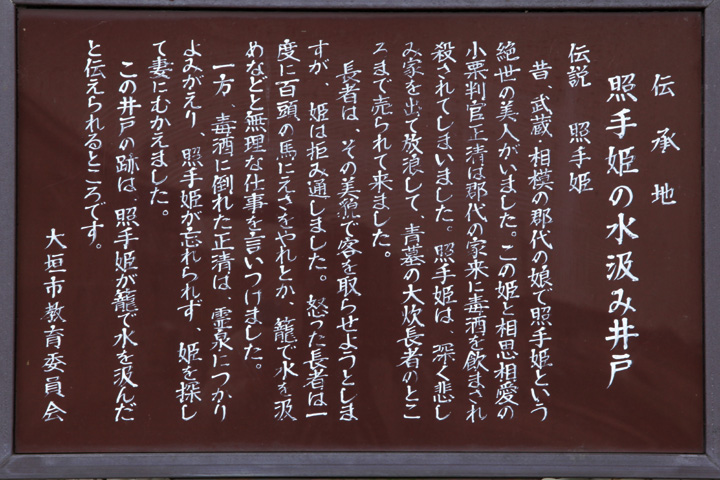 伝承地
照手姫の水汲み井戸
伝説　照手姫
昔、武蔵・相模の郡代の娘で照手姫という
絶世の美人がいました。この姫と相思相愛の
小栗判官正清は郡代の家来に毒酒を飲まされ
殺されてしまいました。照手姫は、深く悲し
み家を出て放浪して、青墓の大炊長者のとこ
ろまで売られて来ました。
長者は、その美貌で客を取らせようとしま
すが、姫は拒み通しました。怒った長者は一
度に百頭の馬にえさをやれとか、籠で水を汲
めなどと無理な仕事を言いつけました。
一方、毒酒に倒れた正清は、霊泉につかり
よみがえり、照手姫が忘れられず、姫を探し
て妻にむかえました。
この井戸の跡は、照手姫が籠で水を汲んだ
と伝えられるところです。
大垣市教育委員会